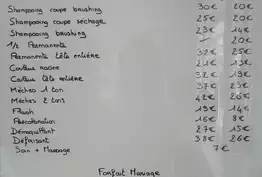 Shampooing coupe brushing 30€ 20€
Shampooing coupe sechage 25€ 20€
Shampooing brushing 23€ 14€
1/2 Permanente - 20€
Permanente tête entière 32€ 25€
Couleur racine 21€ 13€
Couleur tête entière 32€ 19€
Mèches 1 ton 37€ 23€
Mèches 2 tons 42€ 26€
Flash 19€ 14€
Patine 16€ 8€
Démaquillant 27€ 15€
Défrisant 38€ 26€
Soin + Massage 7€
Forfait Mariage